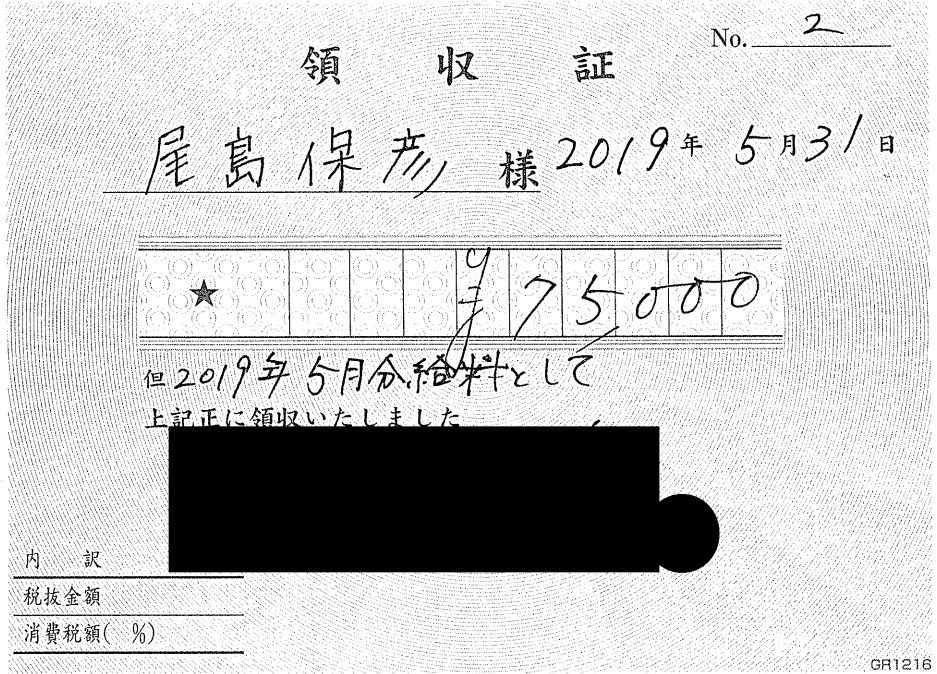 No. 2
領 収 証
尾島保彦 様 2019年 5月31日
★ ¥75,000
但 2019年5月分給料として
上記正に領収いたしました
内 訳
税抜金額
消費税額( %)
GR1216